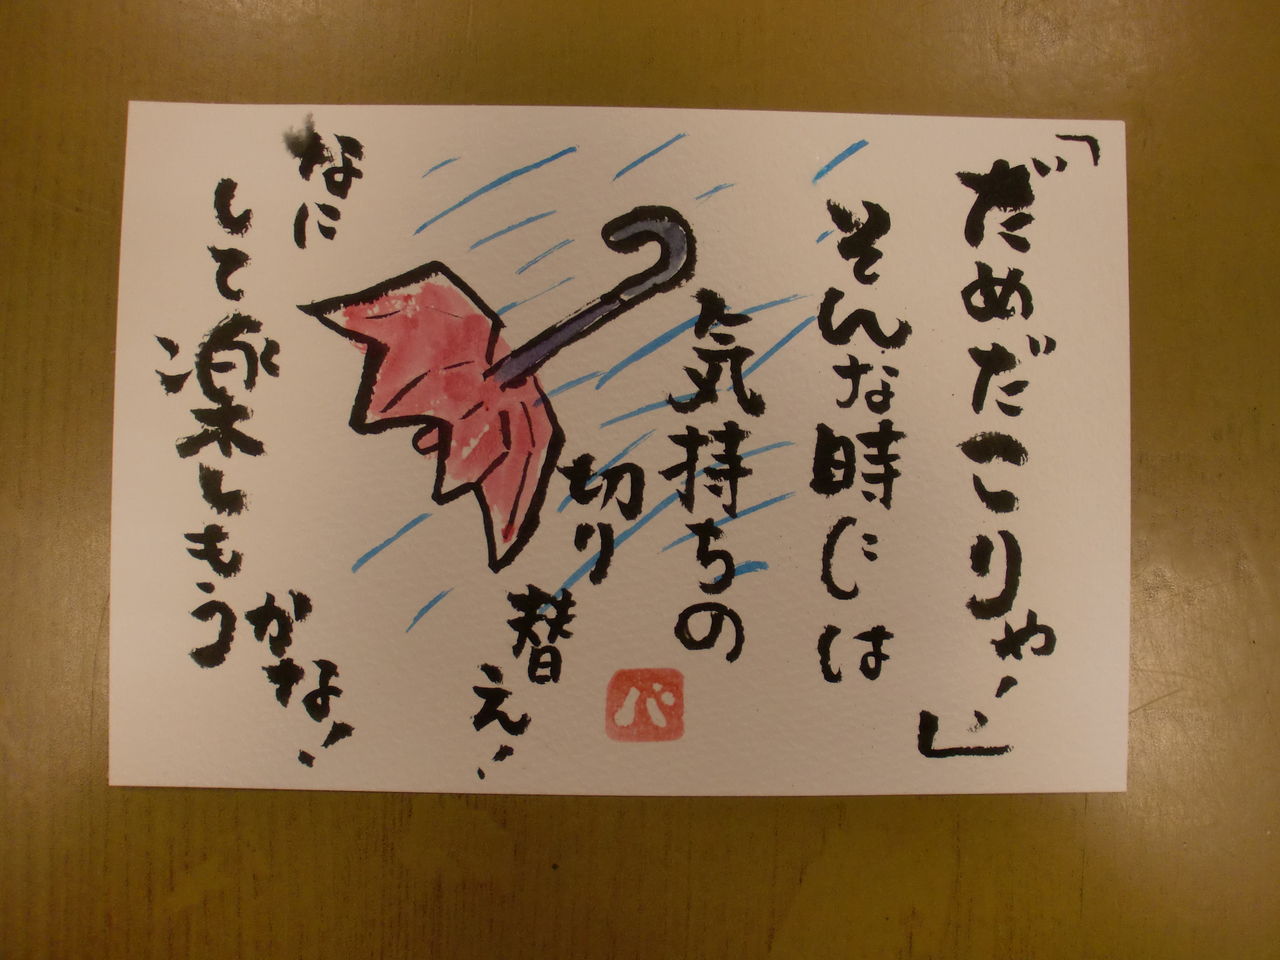 「だめだこりゃ!」
そんな時には
気持ちの
切り
替
え!
なに
して楽しもう
かな!
パ